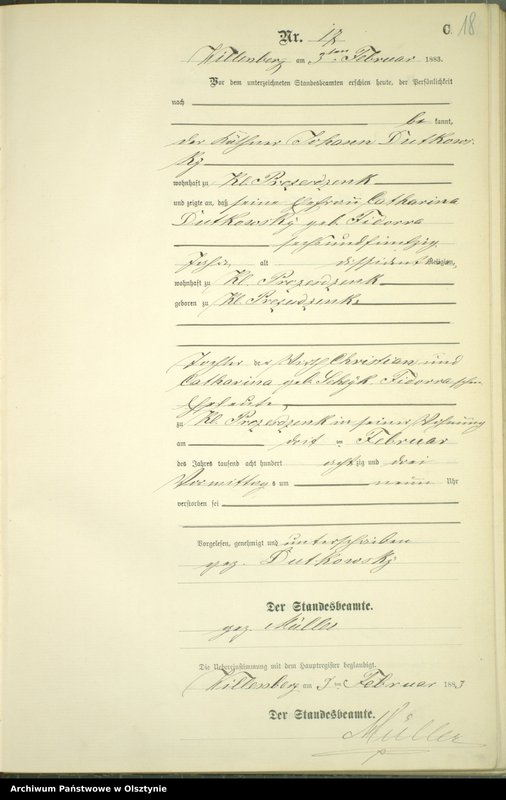 C. 18.
Nr. 12
Willenberg am 3ten Februar 1883.
Vor dem unterzeichneten Standesbeamten erschien heute, der Persönlichkeit
nach
be kannt,
der Käthner Johann Dutkows-
ky
wohnhaft zu Kl. Przesdzenk
und zeigte an, daß seine Ehefrau Catharina
Dutkowsky geb. Fidorra
sechsundfünfzig
Jahre, alt dissident Religion,
wohnhaft zu Kl. Przesdzenk
geboren zu Kl. Przesdzenk
Tochter der Wirth Christian und
Catharina geb. Fidorra'schen
Eheleute,
zu Kl. Przesdzenk in seiner Wohnung
am Februar
des Jahres tausend acht hundert acht zig und drei
Vormittag s um neun Uhr
verstorben sei
Vorgelesen, genehmigt und unterschrieben
gez. Dutkowsky
Der Standesbeamte.
gez. Müller
Die Uebereinstimmung mit dem Hauptregister beglaubigt.
Willenberg am 3ten Februar 1883
Der Standesbeamte.
Müller
Archiwum Państwowe w Olsztynie